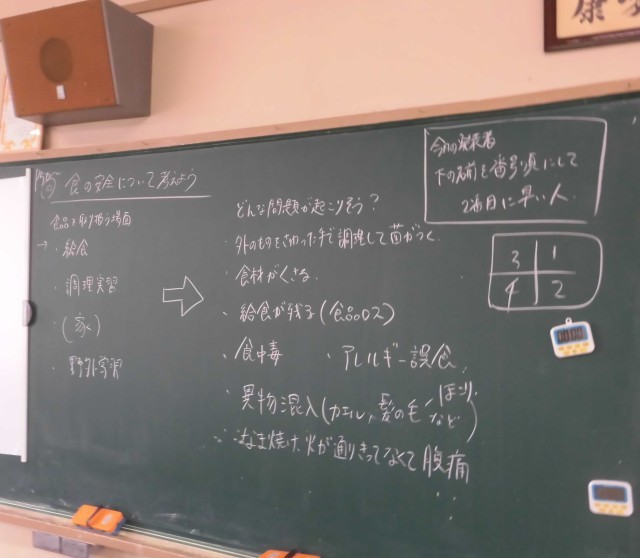 食の安全について考えよう
食品を取り扱う場面
→ 給食
・調理実習
・(家)
・野外学習
どんな問題が起こりそう？
・外のものをさわった手で調理して菌がつく。
・食材がくさる
・給食が残る(食品ロス)
・食中毒 ・アレルギー誤食
・異物混入(カエル、髪の毛、ほこりなど)
・なま焼け、火が通りきってなくて腹痛
今日の発表者
下の名前を番号順にして
2番目に早い人
3 1
4 2